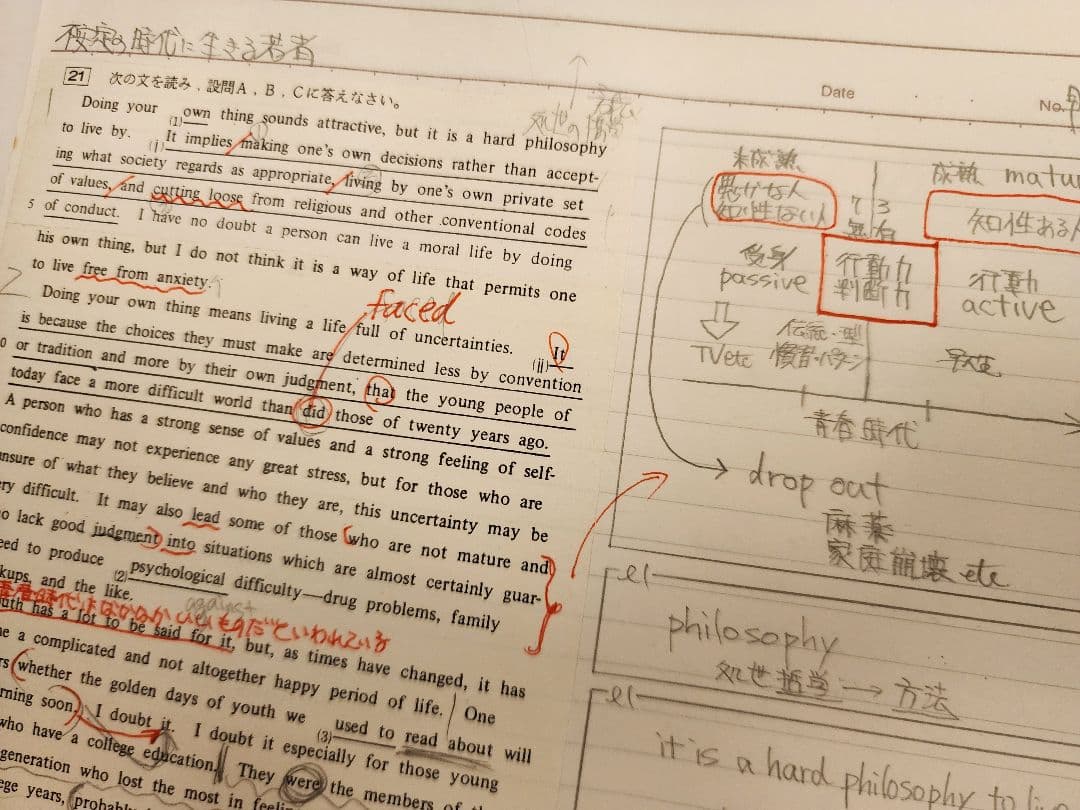 不安な時代に生きる若者
21 次の文を読み，設問A，B，Cに答えなさい。
Doing your own thing sounds attractive, but it is a hard philosophy
(1)
to live by. It implies making one's own decisions rather than accept-
(i)
ing what society regards as appropriate, living by one's own private set
of values, and cutting loose from religious and other conventional codes
5 of conduct. I have no doubt a person can live a moral life by doing
his own thing, but I do not think it is a way of life that permits one
to live free from anxiety.
faced
Doing your own thing means living a life full of uncertainties. It
(ii)
is because the choices they must make are determined less by convention
0 or tradition and more by their own judgment, that the young people of
today face a more difficult world than did those of twenty years ago.
A person who has a strong sense of values and a strong feeling of self-
confidence may not experience any great stress, but for those who are
nsure of what they believe and who they are, this uncertainty may be
ry difficult. It may also lead some of those who are not mature and
o lack good judgment into situations which are almost certainly guar-
eed to produce psychological difficulty—drug problems, family
(2)
kups, and the like.
against
uth has a lot to be said for it, but, as times have changed, it has
e a complicated and not altogether happy period of life. One
rs whether the golden days of youth we used to read about will
(3)
rning soon. I doubt it. I doubt it especially for those young
who have a college education. They were the members of
generation who lost the most in feeli
ege years, probabl
Date
No.
未成熟
成熟 matu
知性ない人
知性ある
受身
passive
行動力
判断力
行動
active
TV etc
伝統・型
慣習・パターン
青春時代
drop out
麻薬
家庭崩壊 etc
philosophy
処世哲学 → 方法
it is a hard philosophy to li